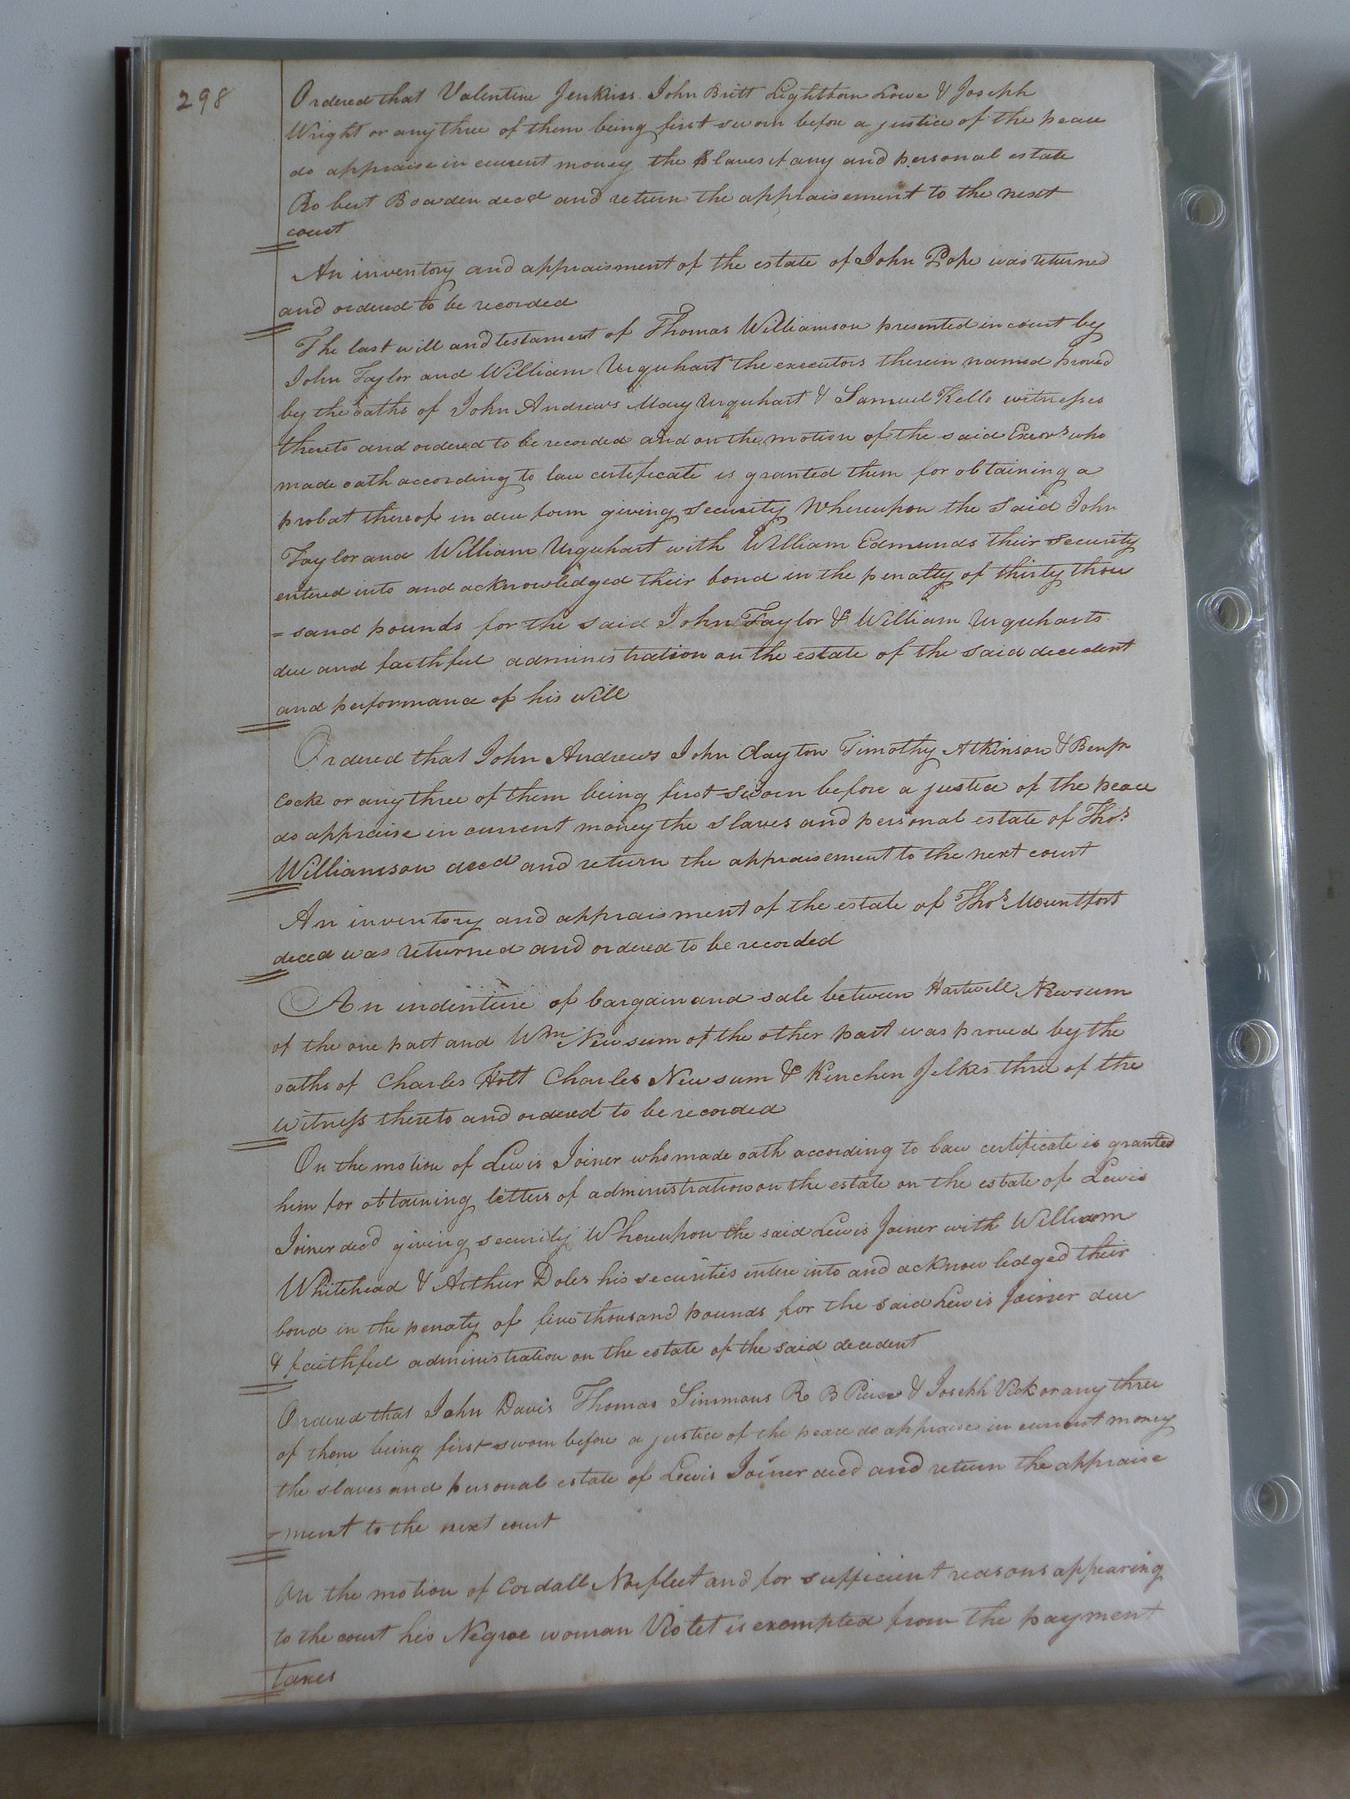 298
Ordered that Valentine Jenkins John Britt Lighthorn Lowe & Joseph
Wright or any three of them being first sworn before a justice of the peace
do appraise in current money the slaves if any and personal estate
Robert Bowden decd and return the appraisement to the next
court
An inventory and appraisment of the estate of John Pope was returned
and ordered to be recorded
The last will and testament of Thomas Williamson presented in court by
John Taylor and William Urquhart the executors therein named proved
by the oaths of John Andrews Mary Urquhart & Samuel Kello witnesses
thereto and ordered to be recorded and on the motion of the said Exors who
made oath according to law certificate is granted them for obtaining a
probat thereof in due form giving security Whereupon the said John
Taylor and William Urquhart with William Edmunds their security
entered into and acknowledged their bond in the penalty of thirty thou
=sand pounds for the said John Taylor & William Urquharts
due and faithful administration on the estate of the said decedent
and performance of his will
Ordered that John Andrews John Clayton Timothy Atkinson & Benjn
Cocke or any three of them being first sworn before a justice of the peace
do appraise in current money the slaves and personal estate of Thos
Williamson decd and return the appraisement to the next court
An inventory and appraisment of the estate of Thos Mountfort
deced was returned and ordered to be recorded
An indenture of bargain and sale between Hartwell Newsum
of the one part and Wm Newsum of the other part was proved by the
oaths of Charles Holt Charles Newsum & Kinchen Jelks three of the
witness thereto and ordered to be recorded
On the motion of Lewis Joiner who made oath according to law certificate is granted
him for obtaining letters of administration on the estate on the estate of Lewis
Joiner decd giving security Whereupon the said Lewis Joiner with William
Whitehead & Arthur Doles his securities enter into and acknowledged their
bond in the penaty of five thousand pounds for the said Lewis Joiner due
& faithful administration on the estate of the said decedent
Ordered that John Davis Thomas Simmons R B Pierce & Joseph Vick or any three
of them being first sworn before a justice of the peace do appraise in current money
the slaves and personal estate of Lewis Joiner decd and return the appraise
=ment to the next court
On the motion of Cordall Norfleet and for sufficient reasons appearing
to the court his Negroe woman Violet is exempted from the payment
taxes